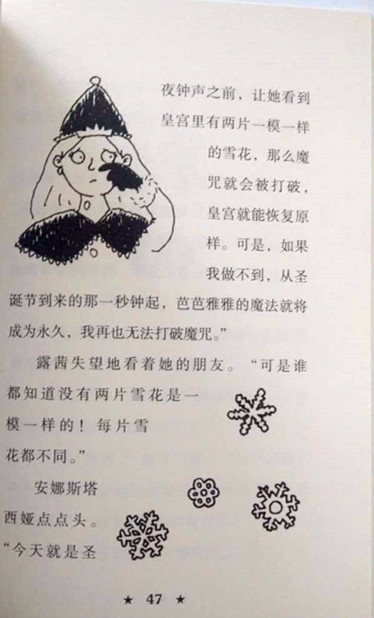 夜钟声之前，让她看到
皇宫里有两片一模一样
的雪花，那么魔
咒就会被打破，
皇宫就能恢复原
样。可是，如果
我做不到，从圣
诞节到来的那一秒钟起，芭芭雅雅的魔法就将
成为永久，我再也无法打破魔咒。”
露茜失望地看着她的朋友。“可是谁
都知道没有两片雪花是一
模一样的！每片雪
花都不同。”
安娜斯塔
西娅点点头。
“今天就是圣
★ 47 ★